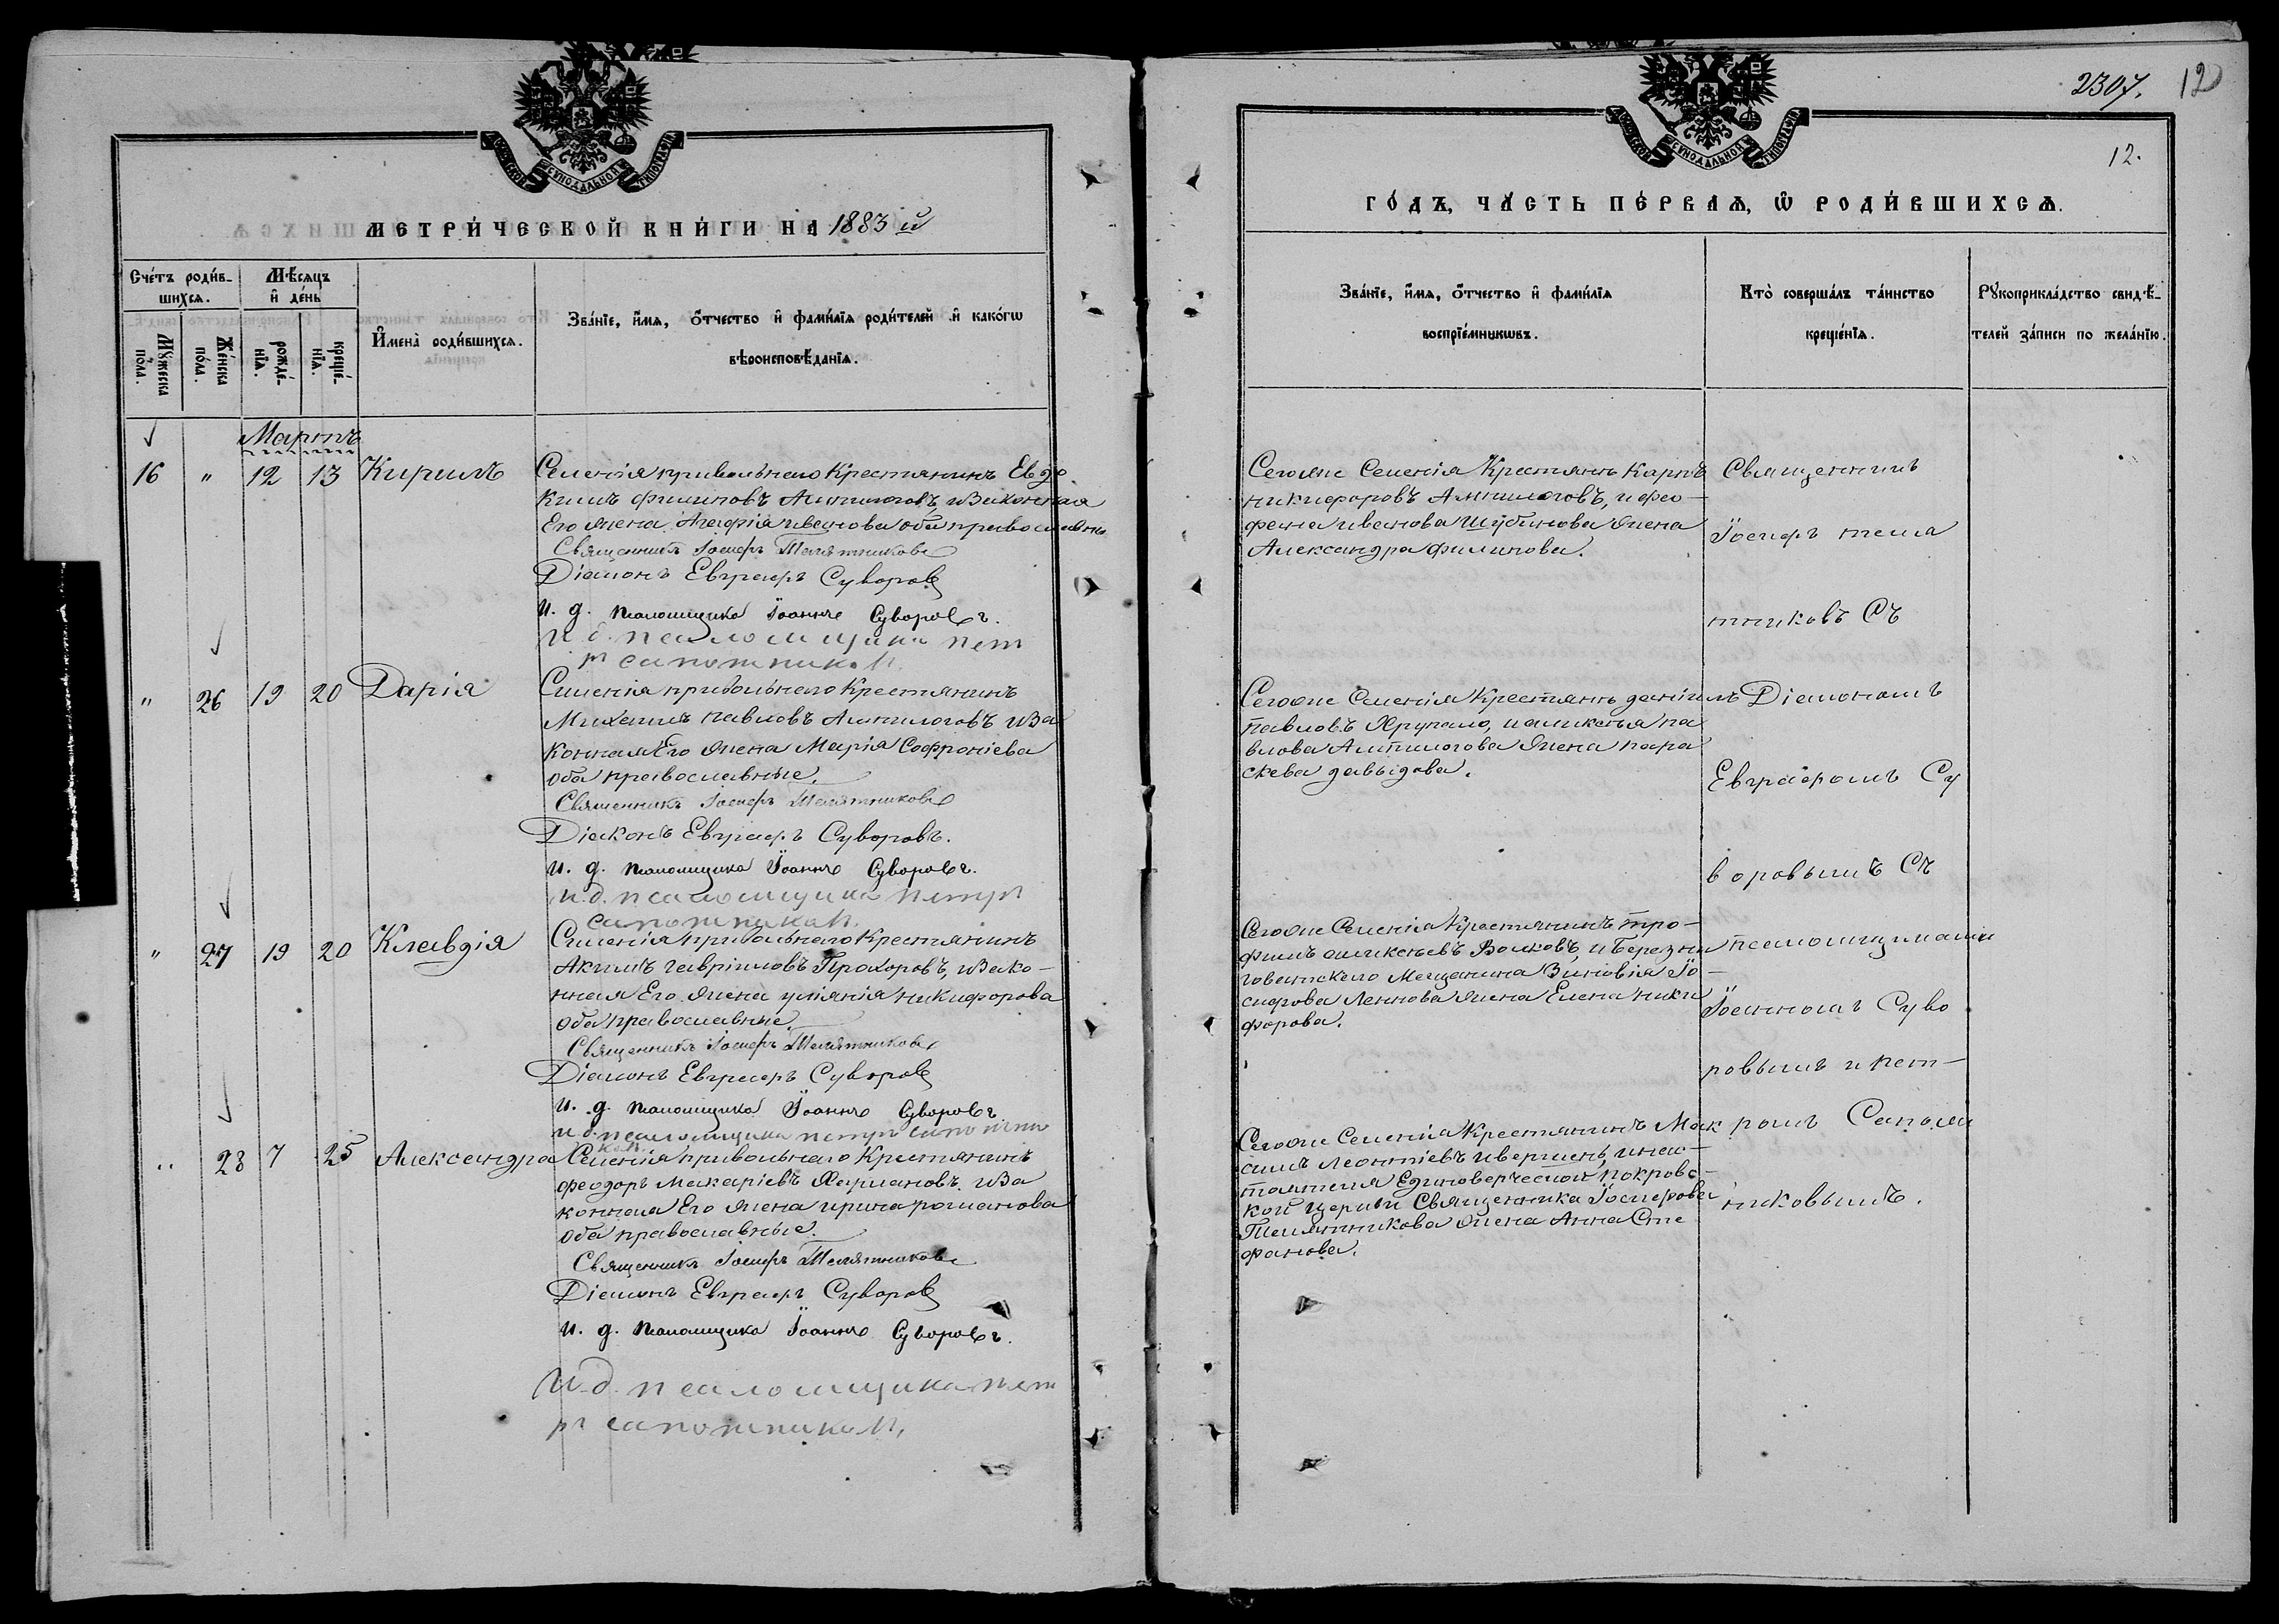 МЕТРИ́ЧЕСКОЙ КНИ́ГИ НА 1883 й
Сче́тъ роди́в-
шихсѧ.
Мѣсѧцъ
и҆ де́нь
Мꙋ́жеска
по́ла.
Же́нска
по́ла.
рожде́-
нїѧ.
креще́-
нїѧ.
И҆мена̀ роди́вшихсѧ.
Зва́нїе, и҆́мѧ, ѻ҆́тчество и҆ фами́лїѧ роди́телей и҆ како́гѡ
вѣроисповѣ́данїѧ.
Мартъ
16 " 12 13 Кирилъ
Селенія привольнаго Крестьянинъ Евдо
кимъ филиповъ Антилоговъ, изаконная
Его жена Агафія иванова оба православны
Священникъ Іосифъ Телятниковъ
Діаконъ Евграфъ Суворовъ
И. д. псаломщика Іоаннъ Суворовъ.
И. д. псаломщика пет
ръ сапожниковъ.
" 26 19 20 Дарія
Силенія привольнаго Крестьянинъ
Михаилъ павловъ Антилоговъ иза
конная Его жена Марія Софроніева
оба православные.
Священникъ Іосифъ Телятниковъ
Діаконъ Евграфъ Суворовъ.
И. д. псаломщика Іоаннъ Суворовъ.
И. д. псаломщика петръ
сапожниковъ.
" 27 19 20 Клавдія
Силенія привольнаго Крестьянинъ
Акимъ гавріиловъ Прохоровъ, изако-
нная Его жена уліянія никифорова
оба православные.
Священникъ Іосифъ Телятниковъ
Діаконъ Евграфъ Суворовъ
И. д. псаломщика Іоаннъ Суворовъ
и д. псаломщика петръ сапожни
ковъ.
" 28 7 25 Александра
Селенія привольнаго Крестьянинъ
феодоръ макаріевъ иза
конная Его жена ирина романова
оба православные.
Священникъ Іосифъ Телятниковъ
Діаконъ Евграфъ Суворовъ
И. д. псаломщика Іоаннъ Суворовъ.
И. д. псаломщика пет
ръ сапожниковъ.
2307. 12
12.
ГО́ДЪ, ЧА́СТЬ ПЕ́РВАѦ, Ѡ҆ РОДИ́ВШИХСѦ.
Зва́нїе, и҆́мѧ, ѻ҆́тчество и҆ фами́лїѧ
воспрїе́мникѡвъ.
Кто̀ соверша́лъ та́инство
креще́нїѧ.
Рꙋкоприкла́дство свидѣ́-
телей за́писи по жела́нїю.
Сегоже Селенія Крестьянъ Карпъ
никифоровъ Антилоговъ, и фео-
фана иванова Шубинова жена
Александра филипова.
Священникъ
Іосифъ теля
тниковъ Съ
Сегоже Селенія Крестьянъ даніилъ
павловъ Хрупало, и аликсѣя па
влова Антилогова жена пара
скева давыдова.
Діакономъ
Евграфомъ Су
воровымъ Съ
Сегоже Селенія Крестьянинъ тро-
фимъ аликсѣевъ Волковъ, и Березни
говатскаго Мещанина Зиновія Іо-
сифова Леннова жена Елена ники
форова.
псаломщиками
Іоанномъ Суво
ровымъ и пет-
Сегоже Селенія Крестьянинъ Мак
симъ леонтіевъ ивершень, и нас-
тоятеля Единоверческой покровс-
кой церкви Священника Іосифова
Телятникова жена Анна Сте
фанова.
ромъ Сапож
никовымъ.